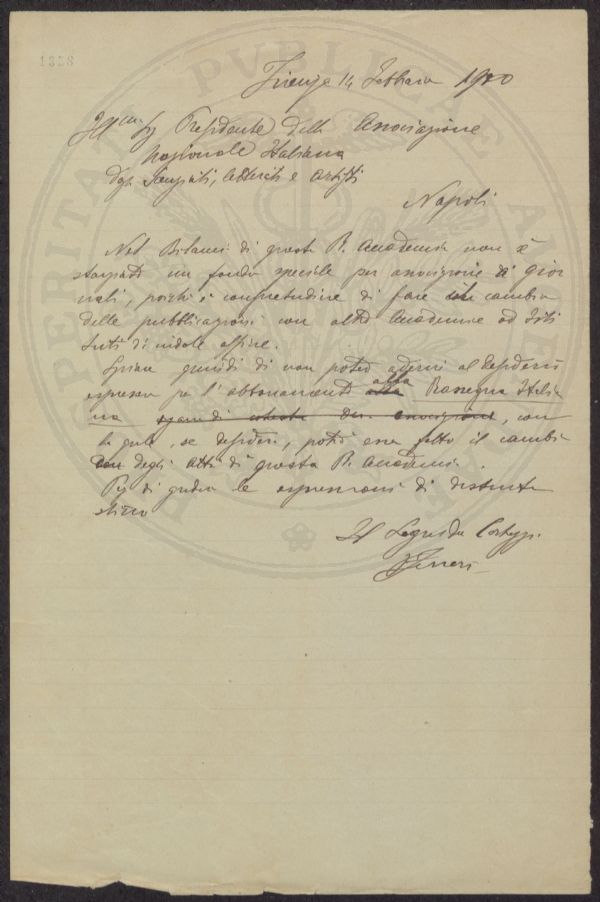 1358
Firenze 14 Febbraio 1900
Ill.mo Sig Presidente della Associazione
Nazionale Italiana
degli Scienziati, Letterati e Artisti
Napoli
Nel Bilancio di questa R. Accademia non è
stanziato un fondo speciale per associazione a gior
nali, poichè è consuetudine di fare il cambio
delle pubblicazioni con altre Accademie ed Isti
tuti di indole affine.
quindi di non poter aderire al desiderio
espresso per l'abbonamento alla Rassegna Italia
na, con
la quale, se desidera, potrà esser fatto il cambio
degli atti di questa R. Accademia.
di gradire le espressioni di distinta
stima
Il Segretario